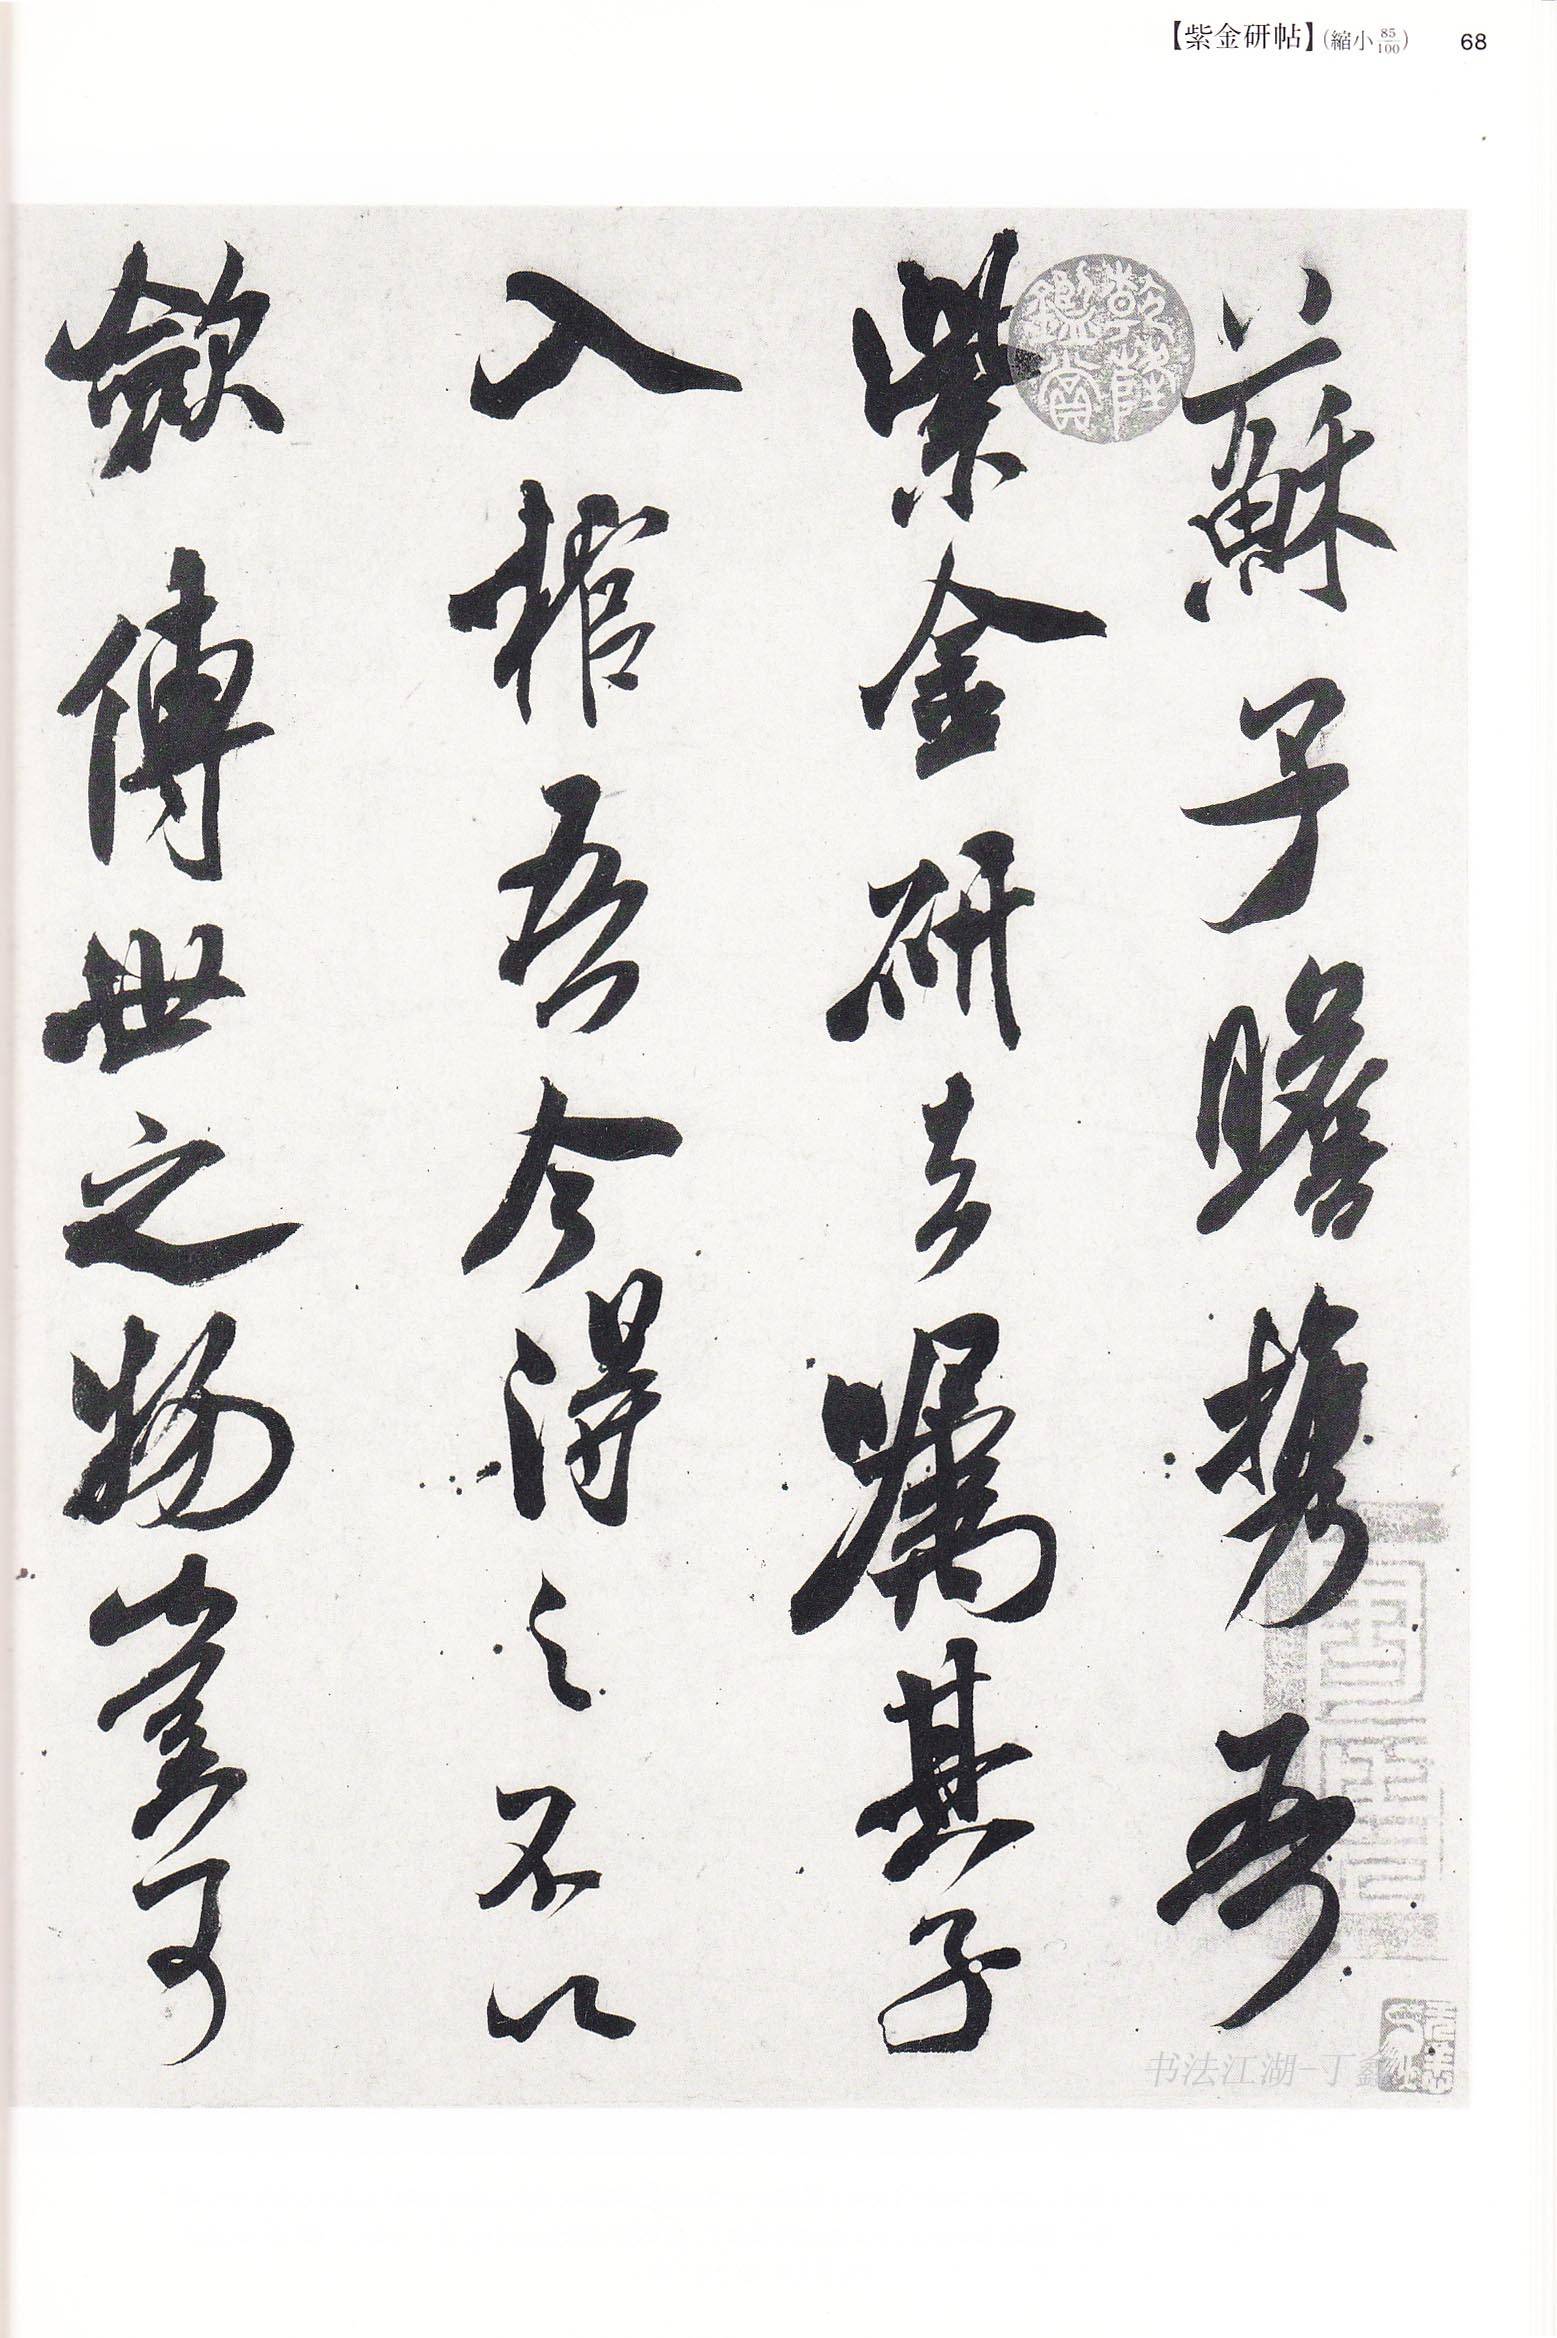 【紫金研帖】(縮小85/100) 68
蘇子瞻携吾
紫金研去嘱其子
入棺吾今得之不以
歛傳世之物豈可
书法江湖-丁鑫